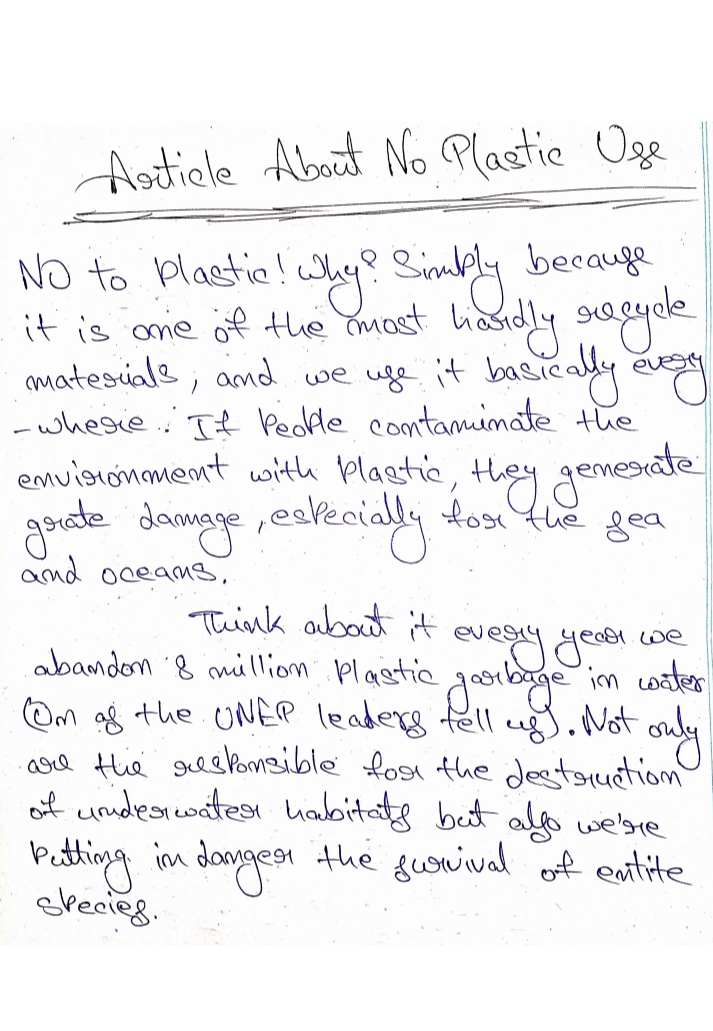 Article About No Plastic Use
NO to plastic! Why? Simply because
it is one of the most hardly recycle
materials, and we use it basically every
-where. If People contaminate the
environment with plastic, they generate
grate damage, especially for the sea
and oceans.
Think about it every year we
abandon 8 million plastic garbage in water
(Om as the UNEP leaders tell us). Not only
are the responsible for the destruction
of underwater habitats but also we're
putting in danger the survival of entite
species.